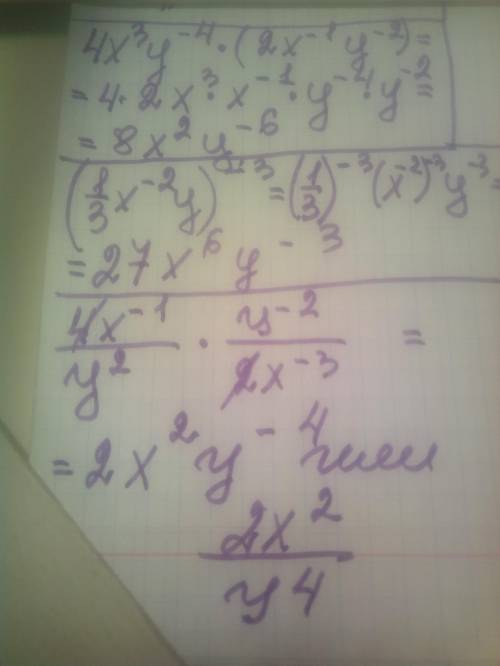 4x³y⁻⁴·(2x⁻¹y⁻²)=
=4·2x³·x⁻¹·y⁻⁴·y⁻²=
=8x²y⁻⁶
(1/3 x⁻²y)⁻³=(1/3)⁻³(x⁻²)⁻³y⁻³=
=27x⁶y⁻³
4x⁻¹/y² · y⁻²/2x⁻³ =
=2x²y⁻⁴ или
2x²/y⁴